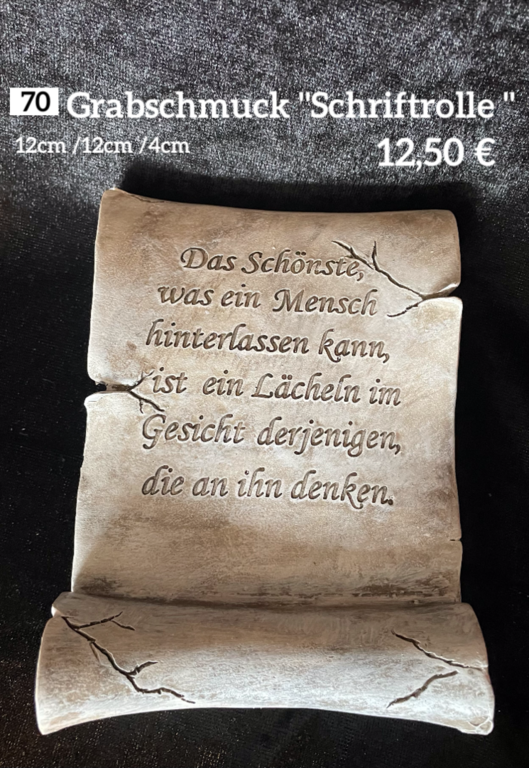 70 Grabschmuck "Schriftrolle "
12cm /12cm /4cm
12,50 €
Das Schönste,
was ein Mensch
hinterlassen kann,
ist ein Lächeln im
Gesicht derjenigen,
die an ihn denken.